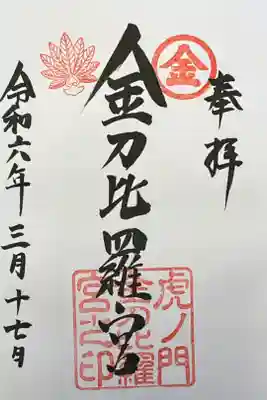 奉拝
金
金刀比羅宮
虎ノ門
金刀比羅
宮之印
令和六年 三月 十七日